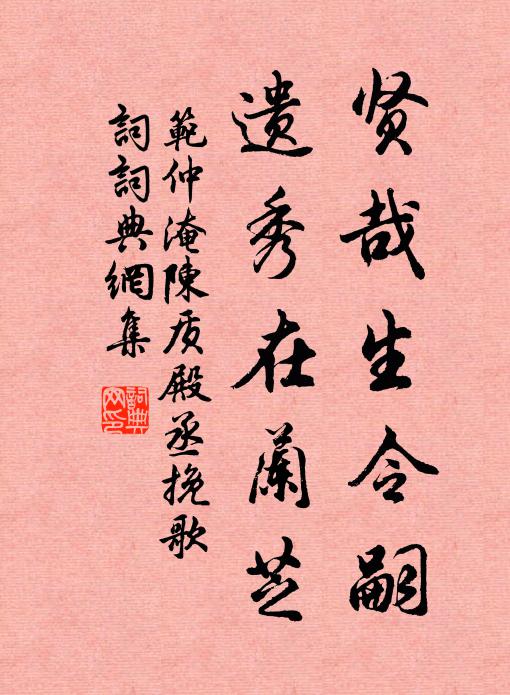 贤哉生令嗣
遗秀在蘭芝
範仲淹陳质殿丞挽歌
詞詞典網集
詞典网印